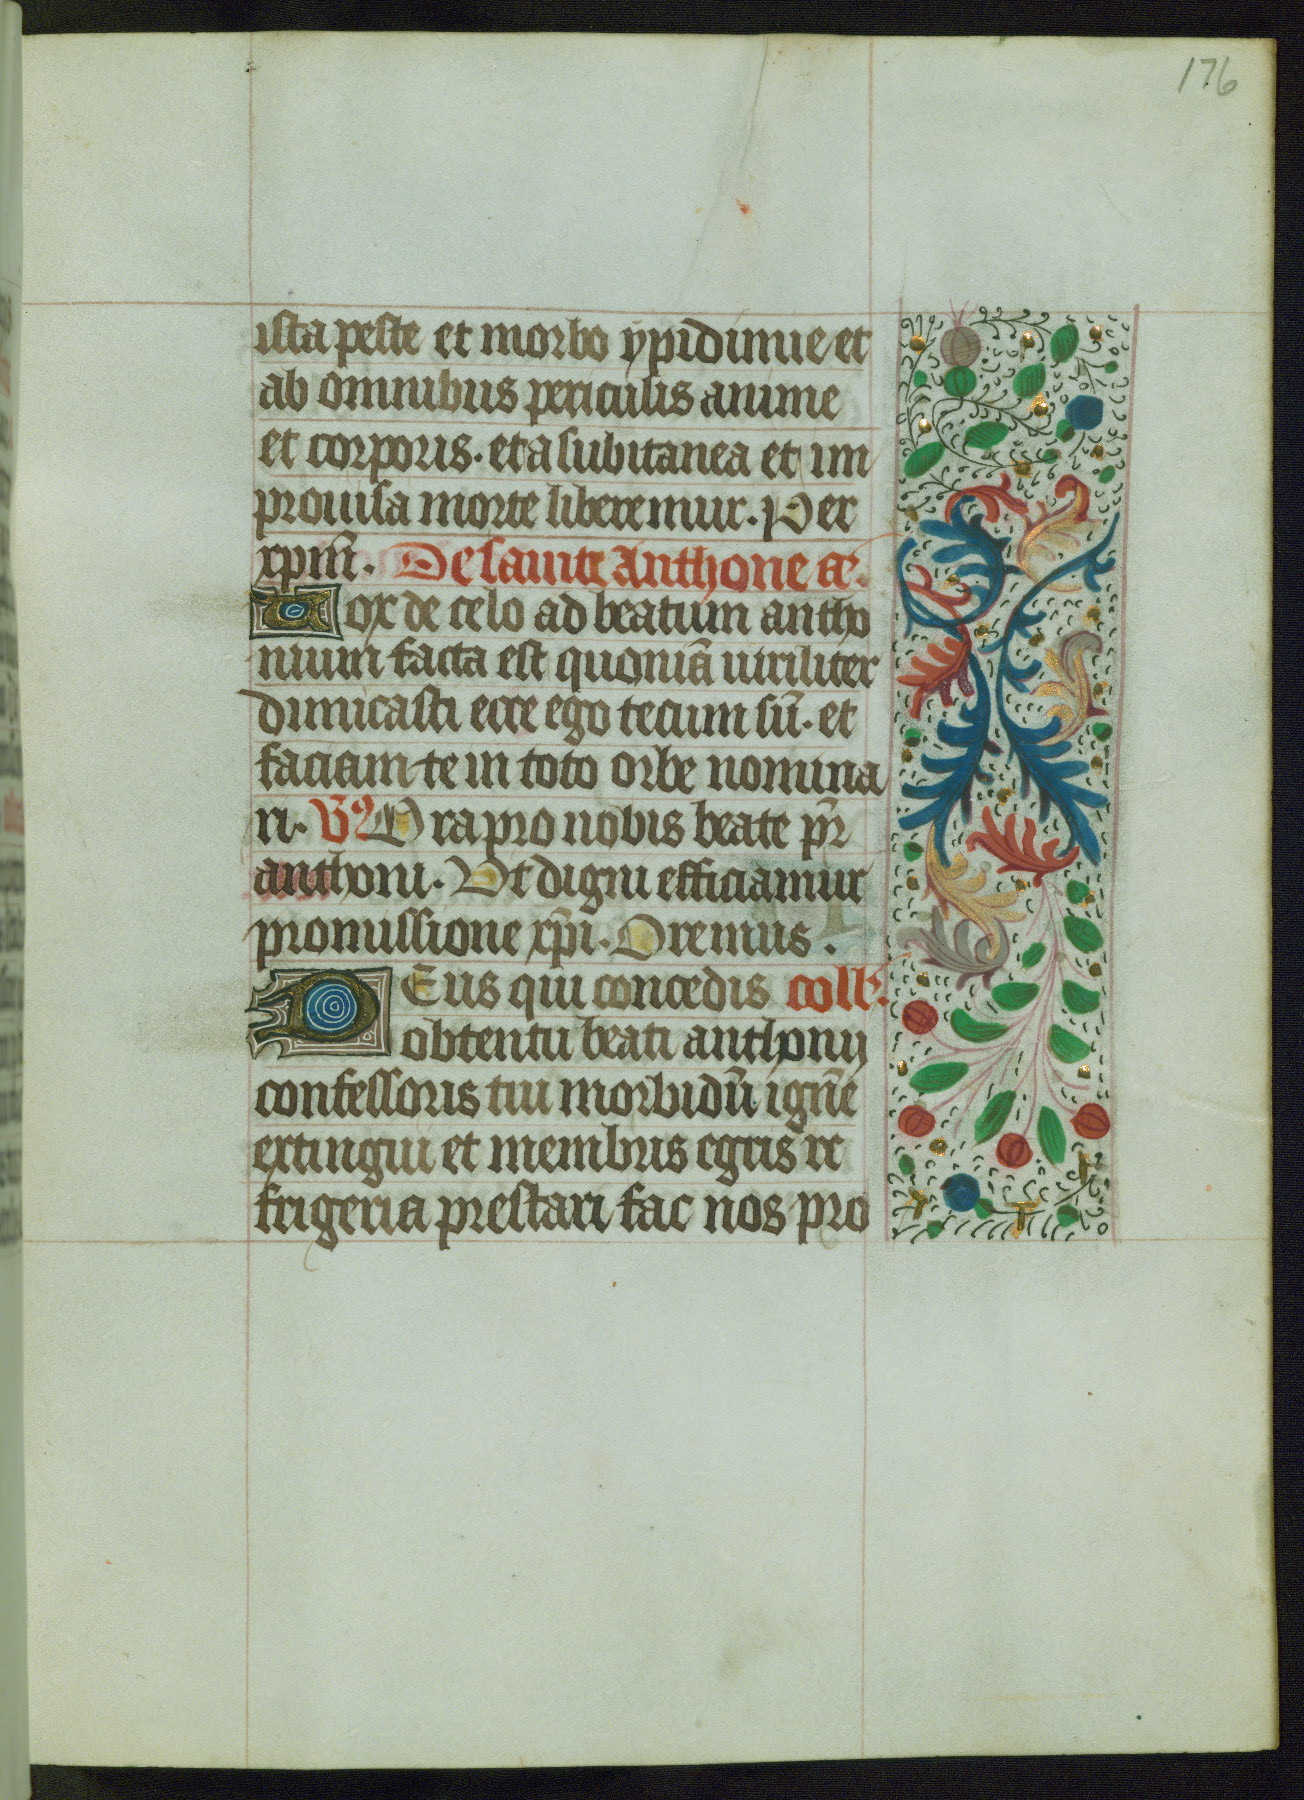 176
ista peste et morbo ypidimie et
ab omnibus periculis anime
et corporis. et a subitanea et im
prouisa morte liberemur. Per
xpm̄. De saint Anthone añ.
Uox de celo ad beatum antho
nium facta est quoniā uiriliter
dimicasti ecce ego tecum sū. et
faciam te in toto orbe nomina
ri. V̓ Ora pro nobis beate pr̄
anthoni. Ut digni efficiamur
promissione xp̄i. Oremus.
DEus qui concedis coll̓.
obtentu beati anthonij
confessoris tui morbidū ignē
extingui et membris egris re
frigeria prestari fac nos pro